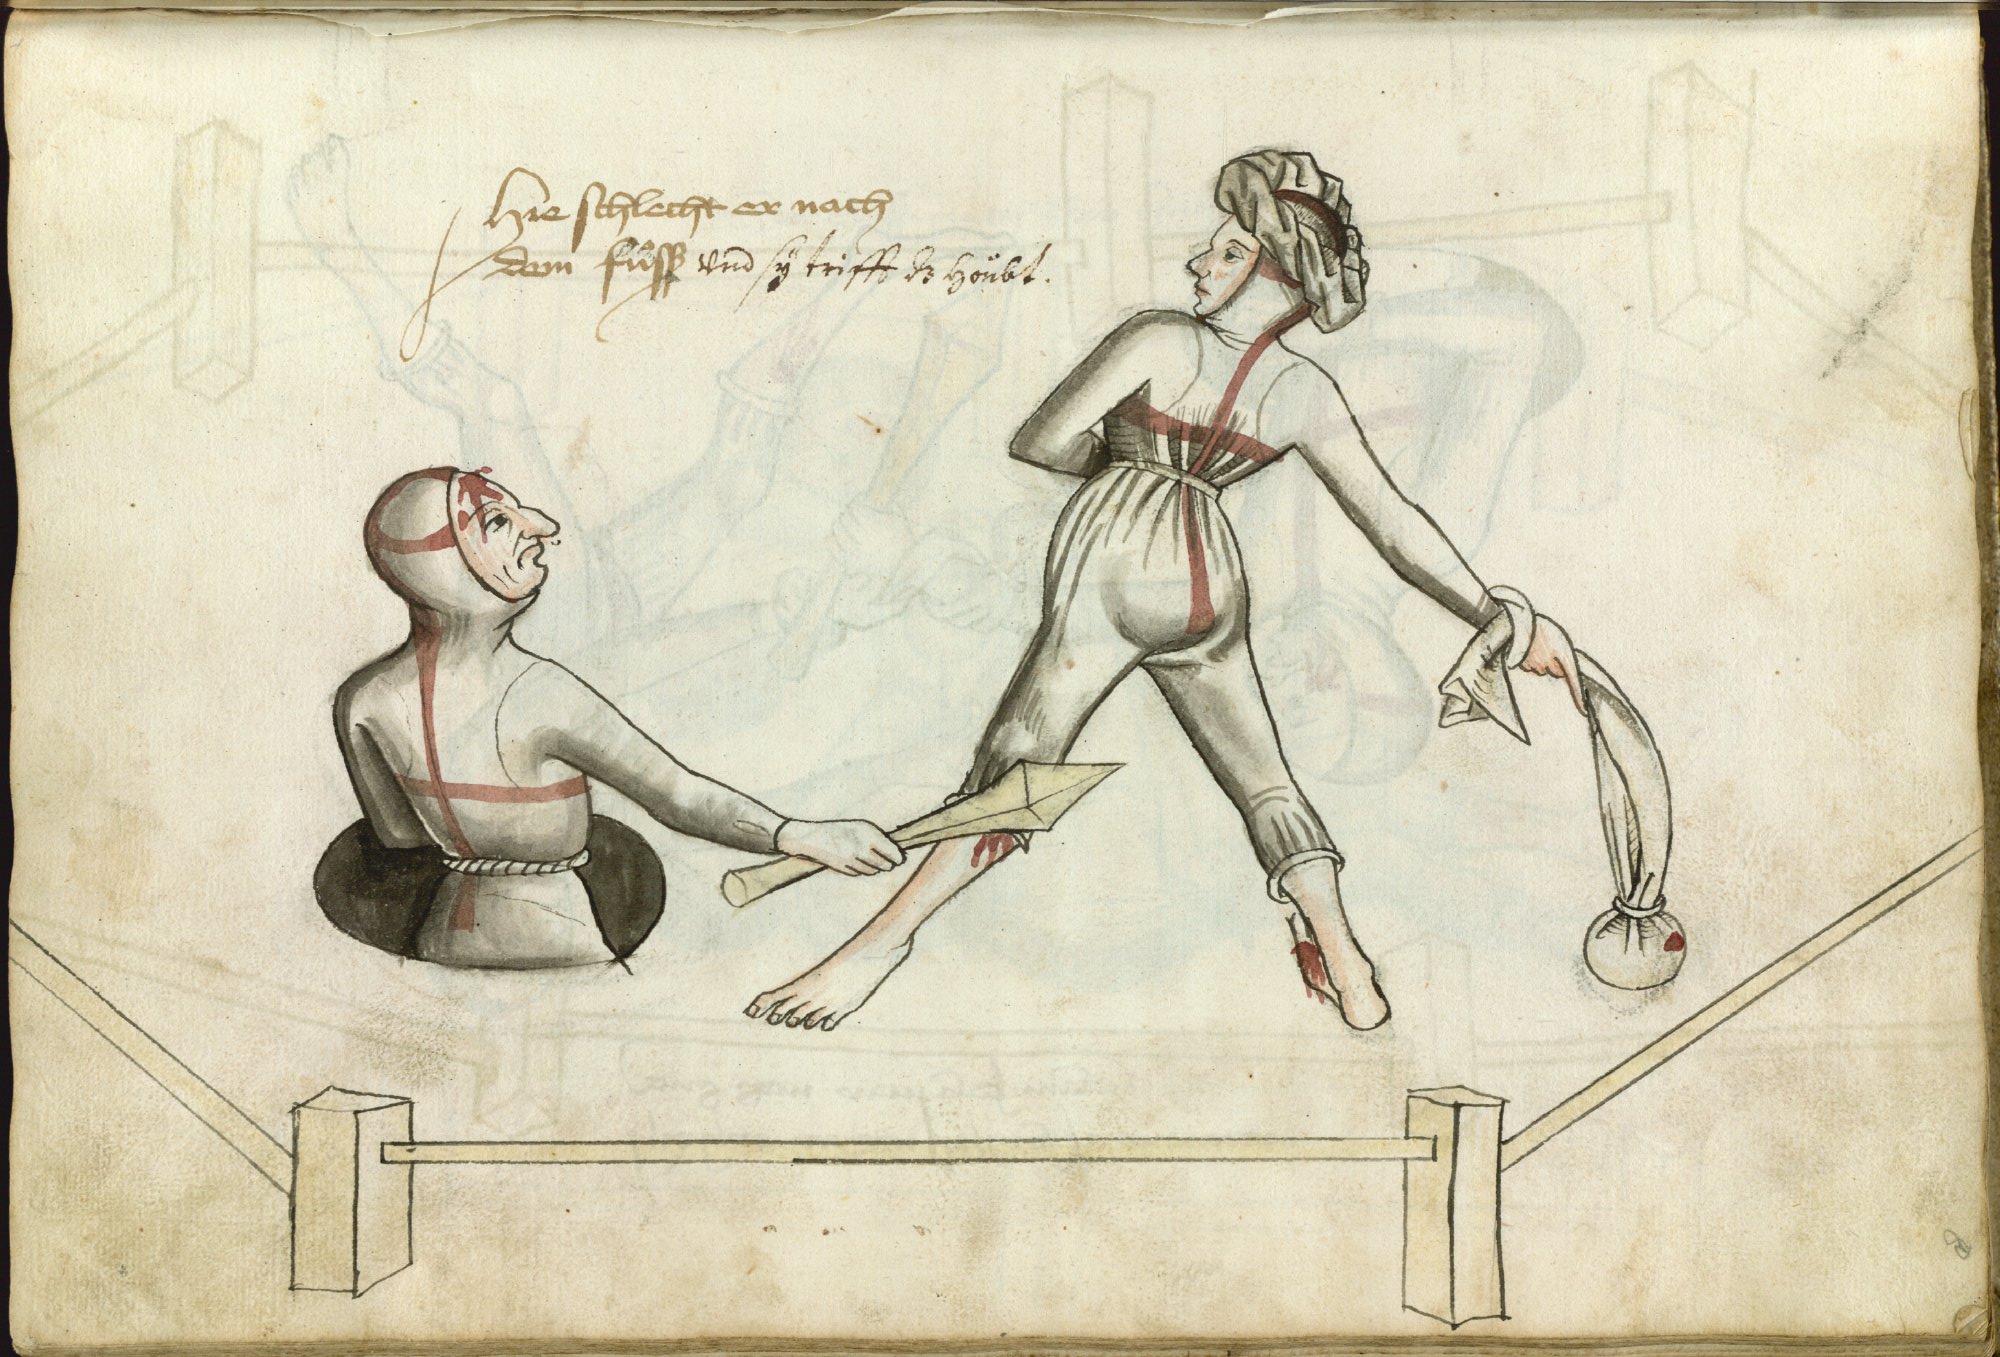 Hie schlecht er nach
dem fůſß vnd sÿ trifft dz höubt.